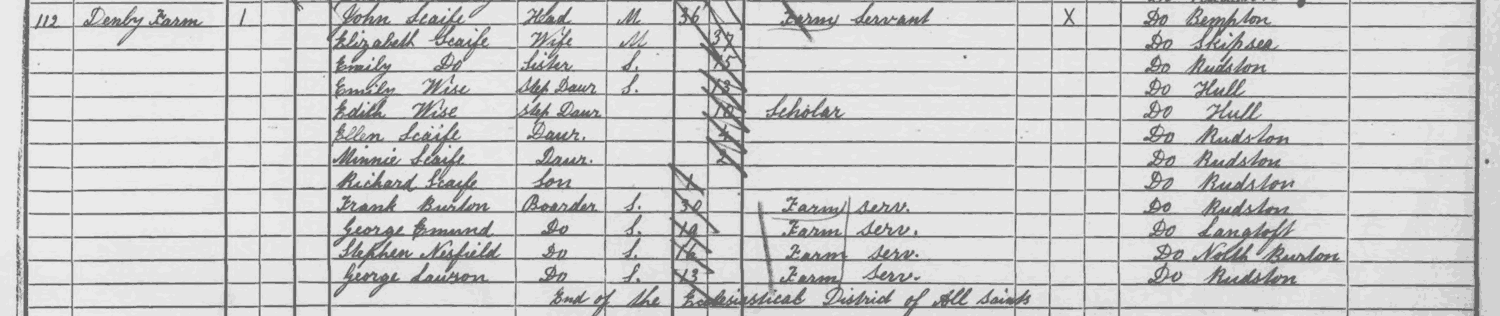 112 Denby Farm 1 John Scaife Head M 36 Farm Servant X Do Bempton
Elizabeth Scaife Wife M 37 Do Skipsea
Emily Do Sister S. 15 Do Rudston
Emily Wise Step Daur S. 13 Do Hull
Edith Wise Step Daur 10 Scholar Do Hull
Ellen Scaife Daur. 4 Do Rudston
Minnie Scaife Daur. 2 Do Rudston
Richard Scaife Son 1 Do Rudston
Frank Burton Boarder S. 30 Farm Serv. Do Rudston
George Emund Do S. 19 Farm Serv. Do Langtoft
Stephen Nesfield Do S. 16 Farm Serv. Do North Burton
George Lawson Do S. 13 Farm Serv. Do Rudston
End of the Ecclesiastical District of All Saints